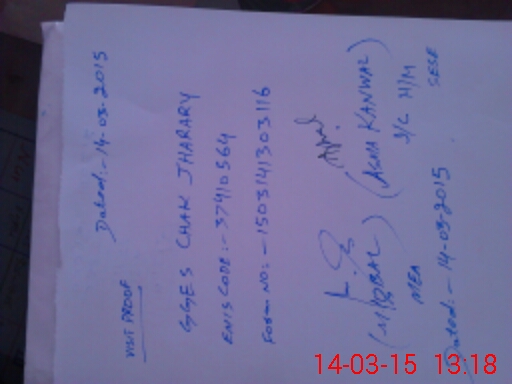 Dated:- 14-03-2015
VISIT PROOF
GGES CHAK JHARARY
EMIS CODE:- 37410564
Form NO:- 1503141303116
(M IQBAL) (ASMA KANWAL)
MEA I/C H/M
SESE
Dated:- 14-03-2015
14-03-15 13:18